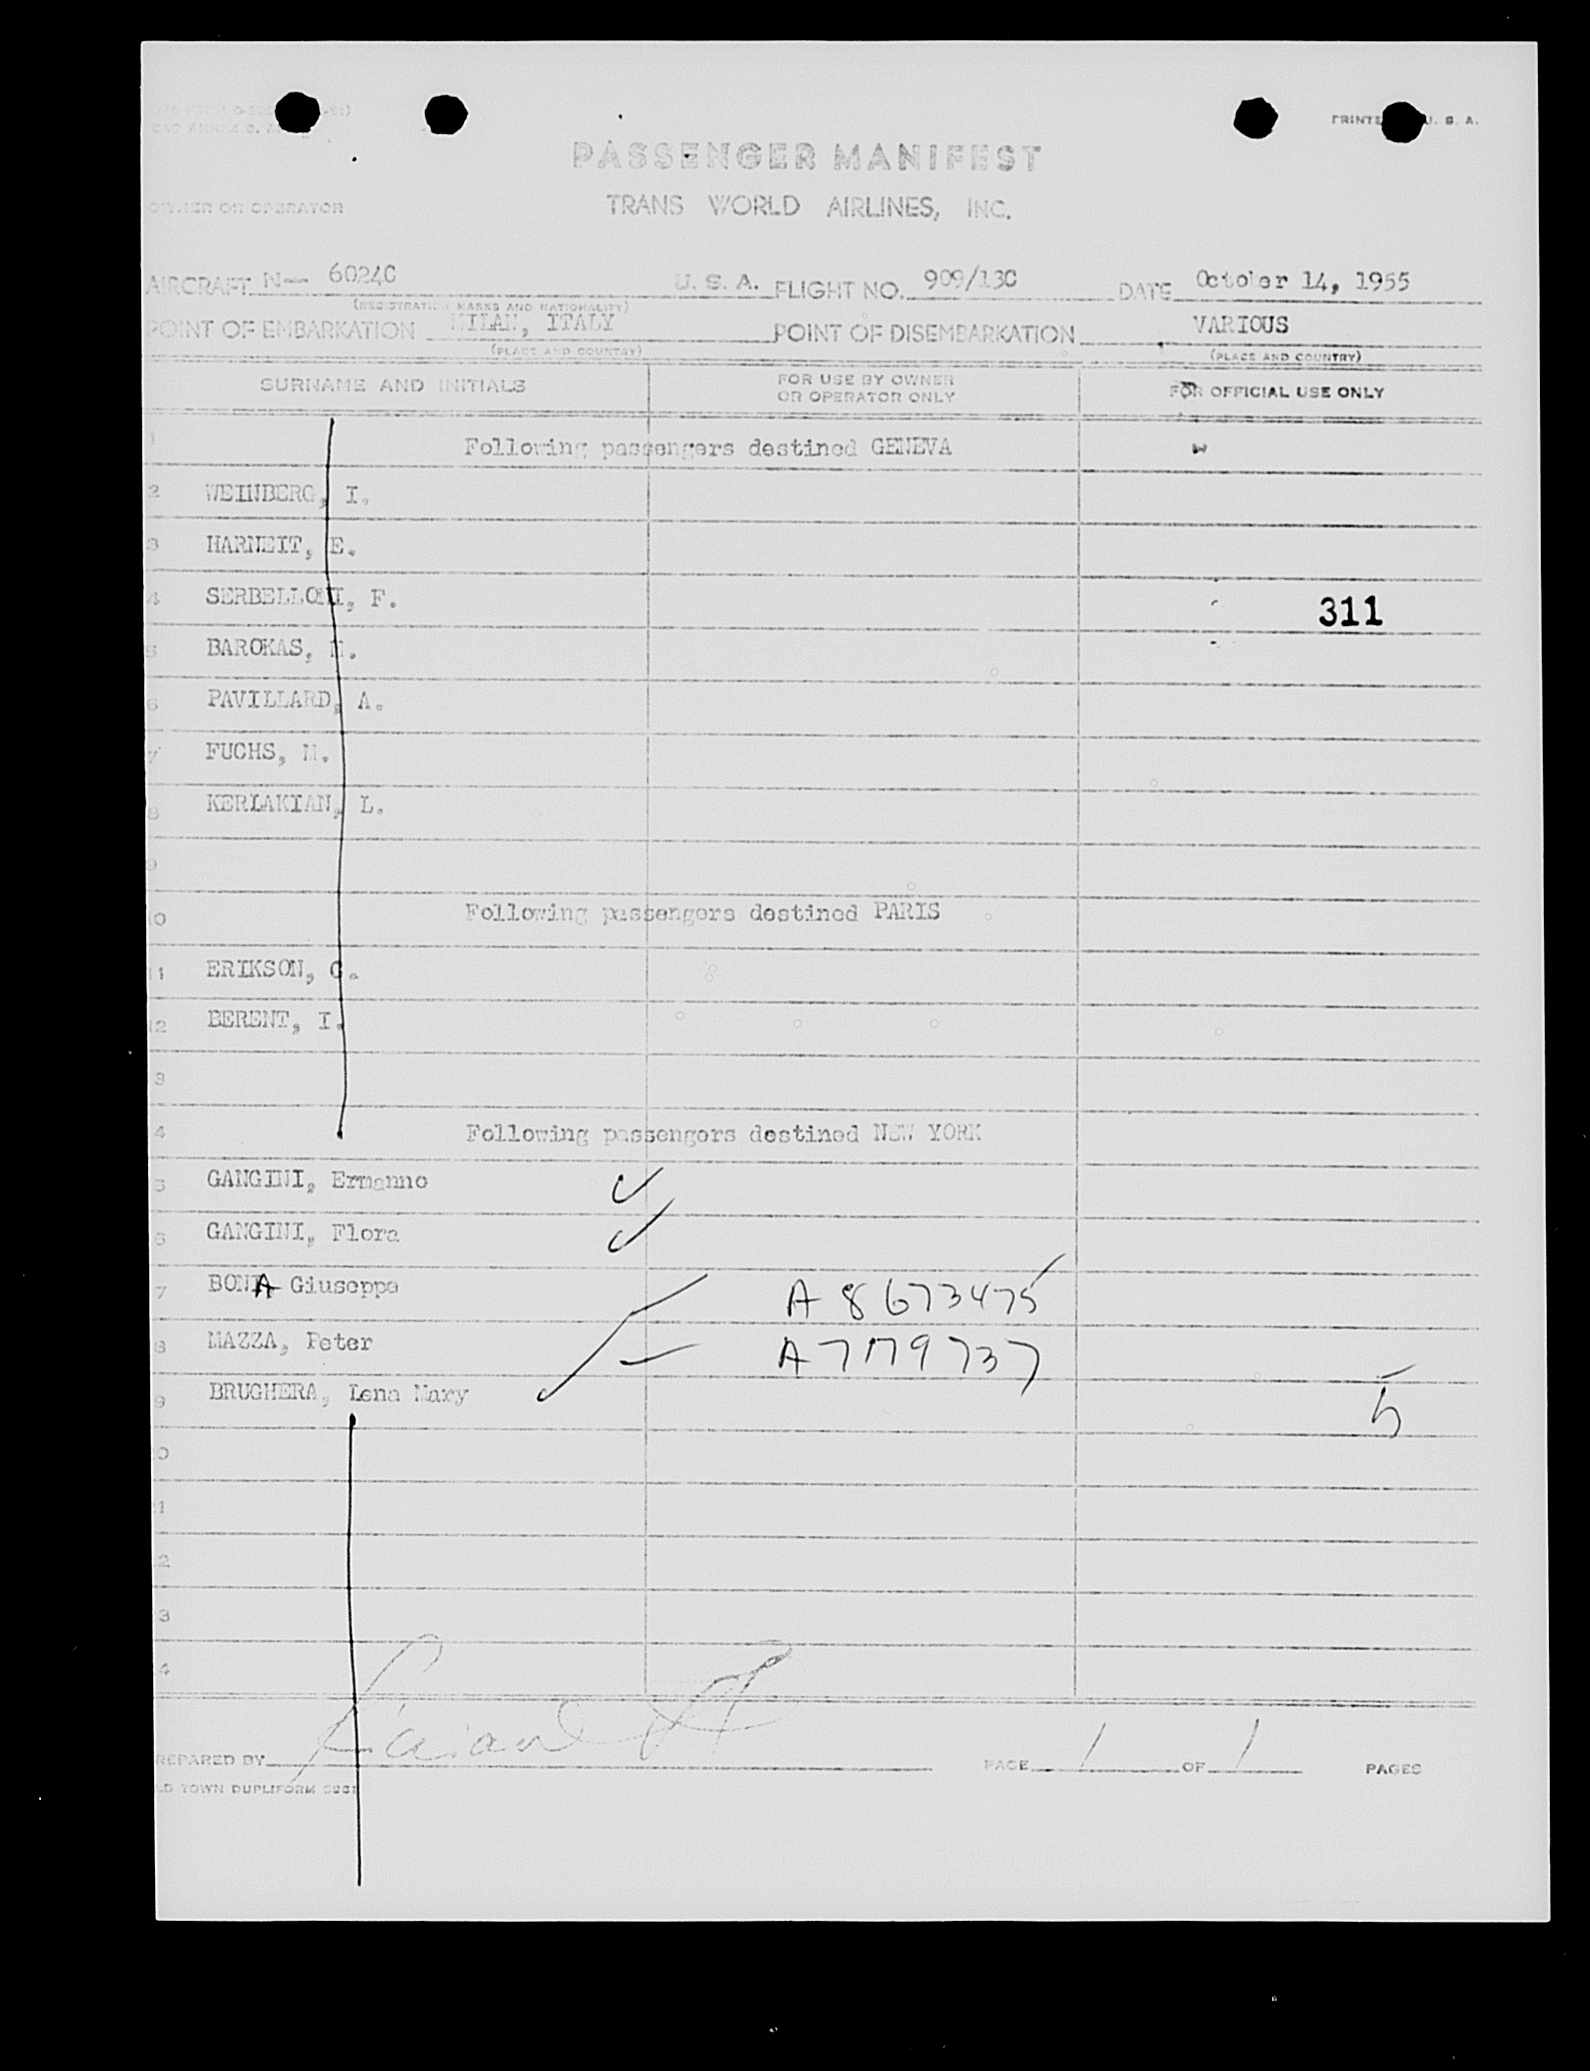 PRINTE U. S. A.
PASSENGER MANIFEST
OWNER OR OPERATOR TRANS WORLD AIRLINES, INC.
AIRCRAFT N— 6024C U. S. A. FLIGHT NO. 909/13C DATE October 14, 1955
(REGISTRATION MARKS AND NATIONALITY)
POINT OF EMBARKATION MILAN, ITALY POINT OF DISEMBARKATION VARIOUS
(PLACE AND COUNTRY) (PLACE AND COUNTRY)
SURNAME AND INITIALS FOR USE BY OWNER OR OPERATOR ONLY FOR OFFICIAL USE ONLY
1 Following passengers destined GENEVA
2 WEINBERG, I.
3 HARNEIT, E.
4 SERBELLONI, F. 311
5 BAROKAS,
6 PAVILLARD, A.
7 FUCHS, M.
8 KERIAKIAN, L.
9
10 Following passengers destined PARIS
11 ERIKSON, G.
12 BERENT, I.
3
4 Following passengers destined NEW YORK
5 GANGINI, Ermanno
6 GANGINI, Flora
7 BONA Giuseppe A 8673475
8 MAZZA, Peter A7179737
9 BRUGHERA, Lena Mary 5
0
1
2
3
4
REPARED BY PAGE 1 OF 1 PAGES
LD TOWN DUPLIFORM